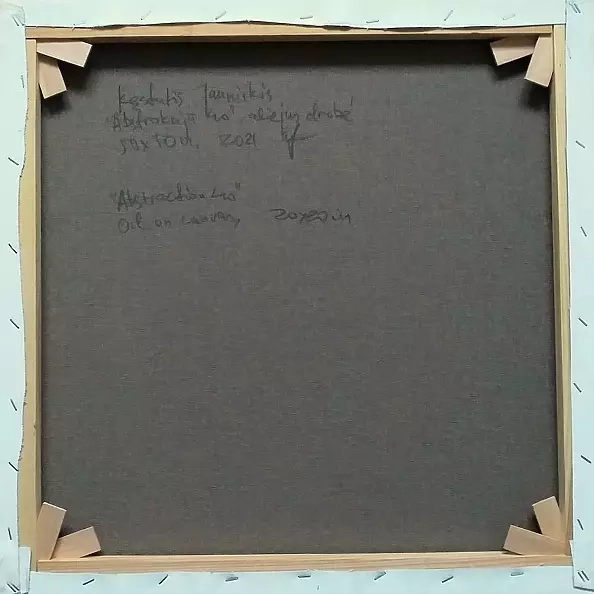 Kęstutis Jauniškis
"Abstrakcija 40" aliejus drobė
50x50cm. 2021
"Abstraction 40"
Oil on canvas, 20x20 in